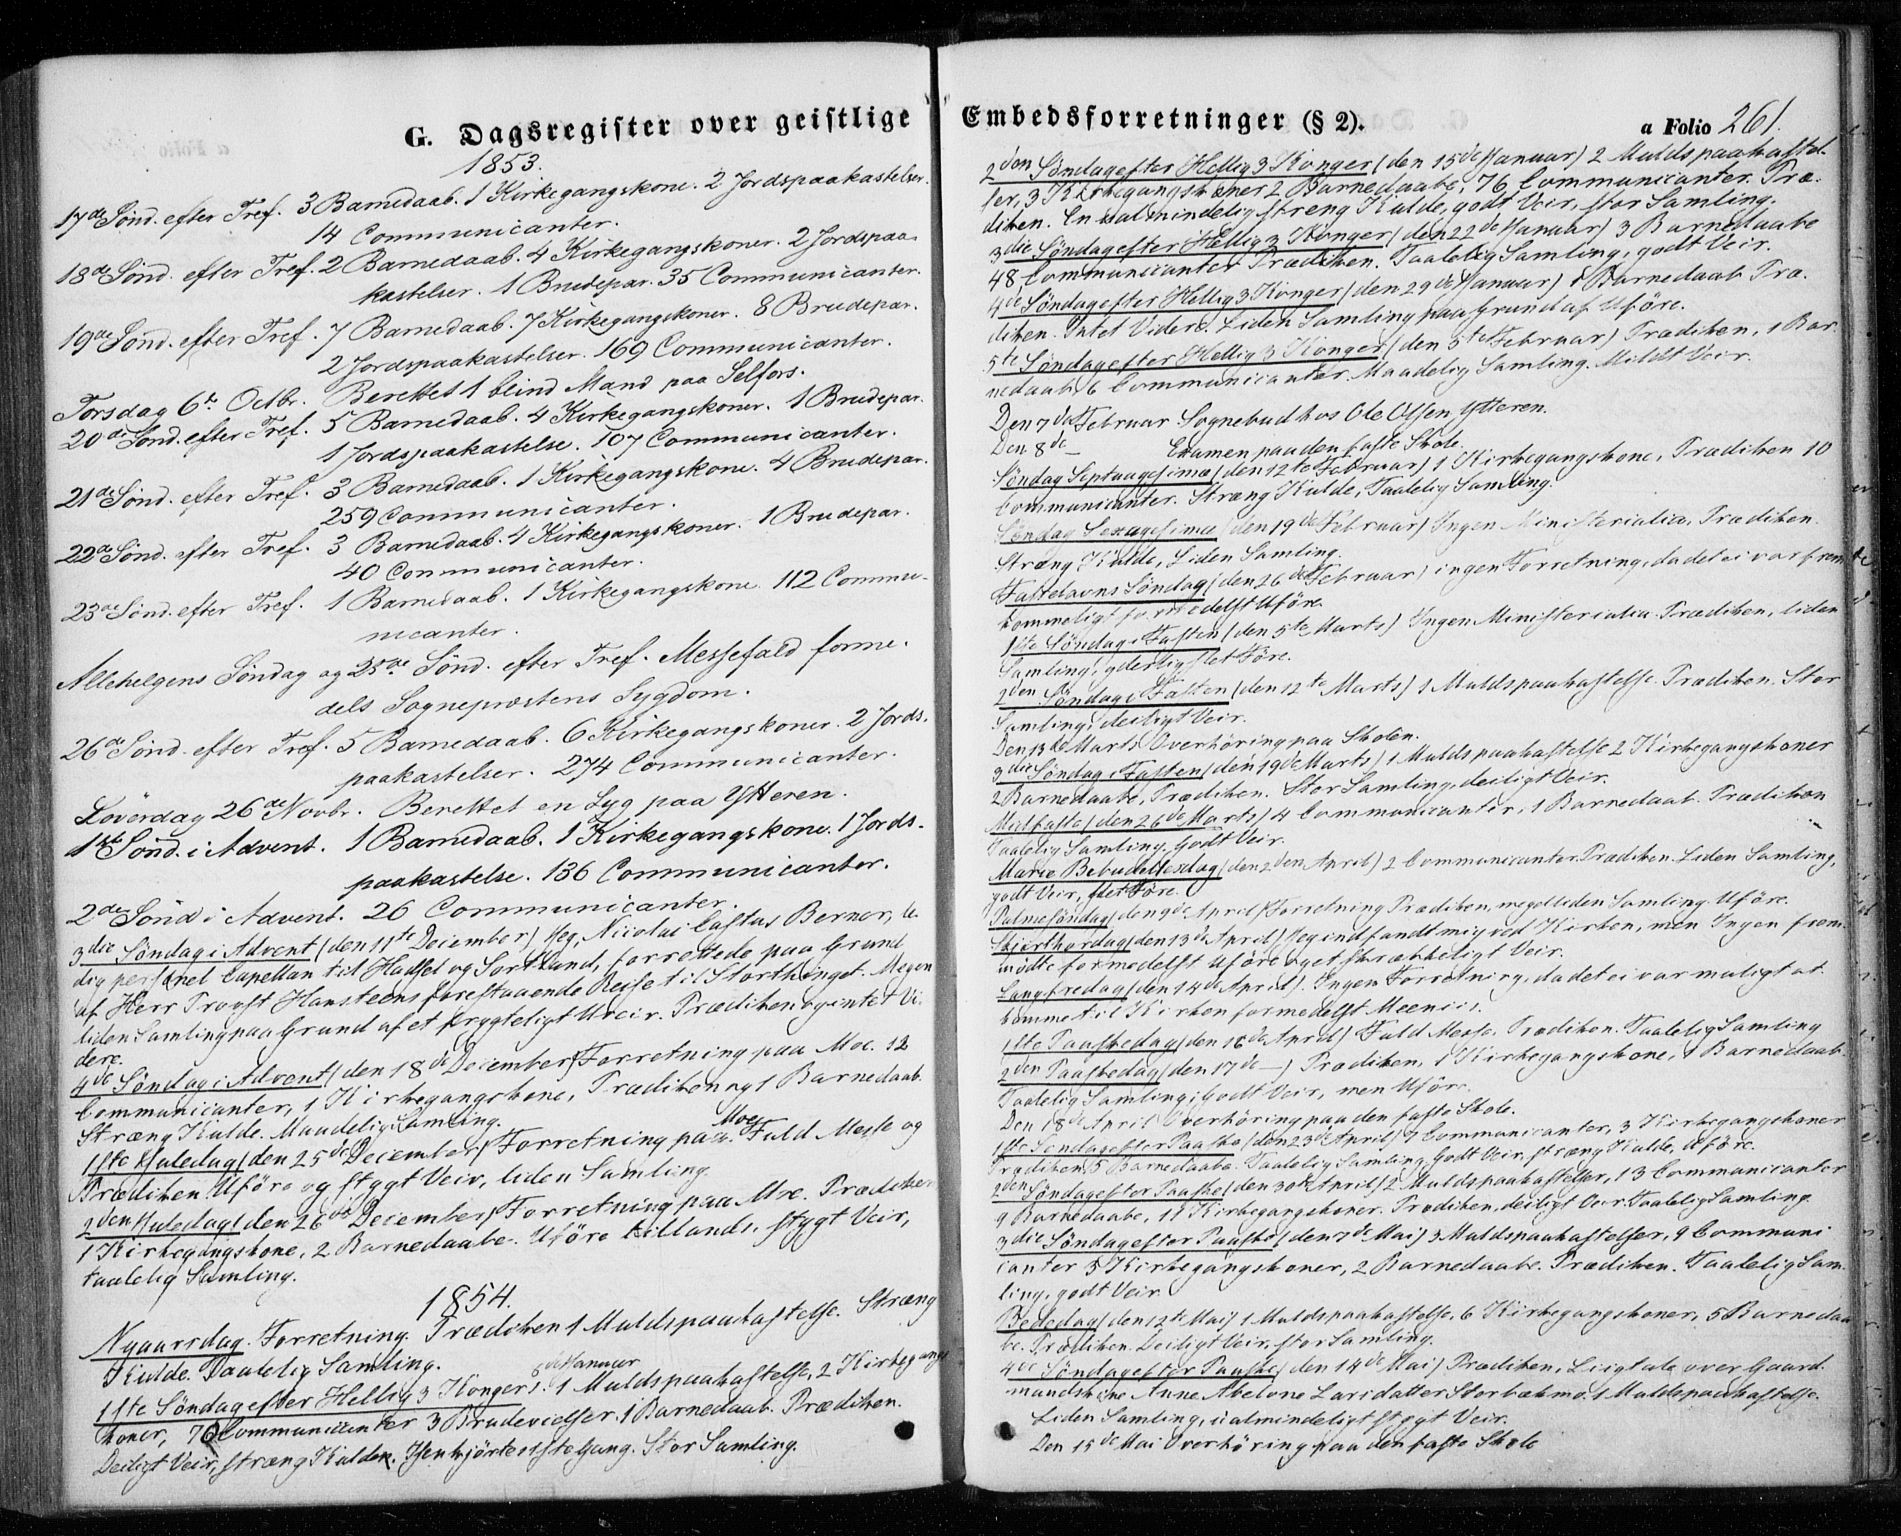 G. Dagsregister over geistlige
1853.
17de Sönd. efter Tref. 3 Barnedaab. 1 Kirkegangskone. 2 Jordspaakastelser.
14 Communicanter.
18de Sönd. efter Tref. 2 Barnedaab. 4 Kirkegangskoner. 2 Jordspaa-
kastelser. 1 Brudepar. 35 Communicanter.
19de Sönd. efter Tref. 7 Barnedaab. 7 Kirkegangskoner. 8 Brudepar.
2 Jordspaakastelser. 169 Communicanter.
Torsdag 6te Octbr. Berettet 1 blind Mand paa Selfors.
20de Sönd. efter Tref. 5 Barnedaab. 4 Kirkegangskoner. 1 Brudepar.
1 Jordspaakastelse. 107 Communicanter.
21de Sönd. efter Tref. 3 Barnedaab. 1 Kirkegangskone. 4 Brudepar.
259 Communicanter.
22de Sönd. efter Tref. 3 Barnedaab. 4 Kirkegangskoner. 1 Brudepar.
40 Communicanter.
23de Sönd. efter Tref. 1 Barnedaab. 1 Kirkegangskone 112 Commu-
nicanter.
Allehelgens Söndag og 25de Sönd. efter Tref. Messefald forme-
dels Sognepræstens Sygdom.
26de Sönd. efter Tref. 5 Barnedaab. 6 Kirkegangskoner. 2 Jords-
paakastelser. 274 Communicanter.
Löverdag 26de Novbr. Berettet en Syg paa Ytteren.
1ste Sönd. i Advent. 1 Barnedaab. 1 Kirkegangskone. 1 Jords-
paakastelse. 136 Communicanter.
2den Sönd i Advent. 26 Communicanter.
3die Söndag i Advent (den 11te December) Jeg, Nicolai Castus Berner, le-
dig personel Capellan til Hadsel og Sortland, forrettede paa Grund
af Herr Provst Hansteens forestaaende Reise til Storthinget. Megen
liden Samling paa Grund af et frygteligt Uveir. Prædiken og intet Vi-
dere.
4de Söndag i Advent (den 18de December) Forretning paa Moe. 12
Communicanter, 1 Kirkegangskone, Prædiken og 1 Barnedaab.
Stræng Kulde. Maadelig Samling.
1ste Juledag (den 25de December) Forretning paa Moe. Fuld Messe og
Prædiken Uföre og stygt Veir, liden Samling.
2den Juledag (den 26de December) Forretning paa Moe. Prædiken
1 Kirkegangskone, 2 Barnedaabe. Uföre tillands. stygt Veir,
taalelig Samling.
1854.
Nyaarsdag. Forretning. Prædiken 1 Muldspaakastelse. Stræng
Kulde. Taalelig Samling.
1ste Söndag efter Hellig 3 Konger 8de Januar 1 Muldspaakastelse, 2 Kirkegangs
koner, 76 Communicanter 3 Brudevielser, 1 Barnedaab. Prædiken.
Deiligt Veir, stræng Kulde. Isen kjörte 1ste Gang. Stor Samling.
Embedsforretninger (§ 2).
a Folio 261.
2den Söndag efter Hellig 3 Konger (den 15de Januar) 2 Muldspaakastel-
ser, 3 Kirkegangskoner 2 Barnedaabe, 76 Communicanter. Præ-
diken. En ualmindelig streng Kulde, godt Veir, stor Samling.
3die Söndag efter Hellig 3 Konger (den 22de Januar) 3 Barnedaabe
48 Communicanter Prædiken. Taalelig Samling, godt Veir.
4de Söndag efter Hellig 3 Konger (den 29de Januar) 1 Barnedaab Præ-
diken. Intet Videre. Liden Samling paa Grund af Uföre.
5te Söndag efter Hellig 3 Konger (den 5te Februar) Prædiken, 1 Bar-
nedaab, 6 Communicanter. Maadelig Samling. Mildt Veir.
Den 7de Februar Sognebud hos Ole Olsen, Ytteren.
Den 8de — Examen paa den faste Skole.
Söndag Septuagesima (den 12te Februar) 1 Kirkegangskone, Prædiken 10
Communicanter. Stræng Kulde, Taalelig Samling.
Söndag Sexagesima (den 19de Februar) Ingen Ministerialia, Prædiken
Stræng Kulde, Liden Samling.
Fastelavns Söndag (den 26de Februar) ingen Forretning, da det ei var frem-
kommeligt formedelst Uföre.
1ste Söndag i Fasten (den 5te Marts) Ingen Ministerialia Prædiken, liden
Samling, yderlig slet Före.
2den Söndag i Fasten (den 12te Marts) 1 Muldspaakastelse. Prædiken. Stor
Samling, deiligt Veir.
Den 13de Marts Overhöring paa Skolen.
3die Söndag i Fasten (den 19de Marts) 1 Muldspaakastelse 2 Kirkegangskoner
2 Barnedaabe, Prædiken. Stor Samling, deiligt Veir.
Midfaste (den 26de Marts) 4 Communicanter, 1 Barnedaab. Prædiken
Taalelig Samling, Godt Veir.
Mariæ Bebudelsesdag (den 2den April) 2 Communicanter. Prædiken. Liden Samling,
godt Veir, slet Före.
Palmesöndag (den 9de April) Forretning Prædiken, meget liden Samling. Uföre.
Skjærthorsdag (den 13de April) Jeg indfandt mig ved Kirken, men Ingen frem-
mödte formedelst Uföre og et skrækkeligt Veir.
Langfredag (den 14de April). Ingen Forretning, da det ei var muligt at
komme til Kirken formedelst Meenis.
1ste Paaskedag (den 16de April) Fuld Messe. Prædiken. Taalelig Samling
2den Paaskedag (den 17de —) Prædiken, 1 Kirkegangskone, 1 Barnedaab
Taalelig Samling, Godt Veir, men Uföre.
Den 18de April Overhöring paa den faste Skole.
1ste Söndag efter Paaske (den 23de April) 7 Communicanter, 3 Kirkegangskoner
Prædiken, 5 Barnedaabe. Taalelig Samling, Godt Veir, stræng Kulde, Uföre.
2den Söndag efter Paaske (den 30de April) 2 Muldspaakastelser, 13 Communicanter
9 Barnedaabe, 11 Kirkegangskoner. Prædiken, deiligt Veir. Taalelig Samling.
3die Söndag efter Paaske (den 7de Mai) 3 Muldspaakastelser, 9 Communi
canter 3 Kirkegangskoner, 2 Barnedaabe. Prædiken. Taalelig Sam-
ling, godt Veir.
Bededag (den 12te Mai) 1 Muldspaakastelse, 6 Kirkegangskoner, 5 Barnedaa
be. Prædiken. Deiligt Veir, stor Samling.
4de Söndag efter Paaske (den 14de Mai) Prædiken, Liigtale over Gaard-
mandskone Anne Abelone Larsdatter Storbækmo. 1 Muldspaakastelse.
Liden Samling, ualmindeligt stygt Veir.
Den 15de Mai Overhöring paa den faste Skole